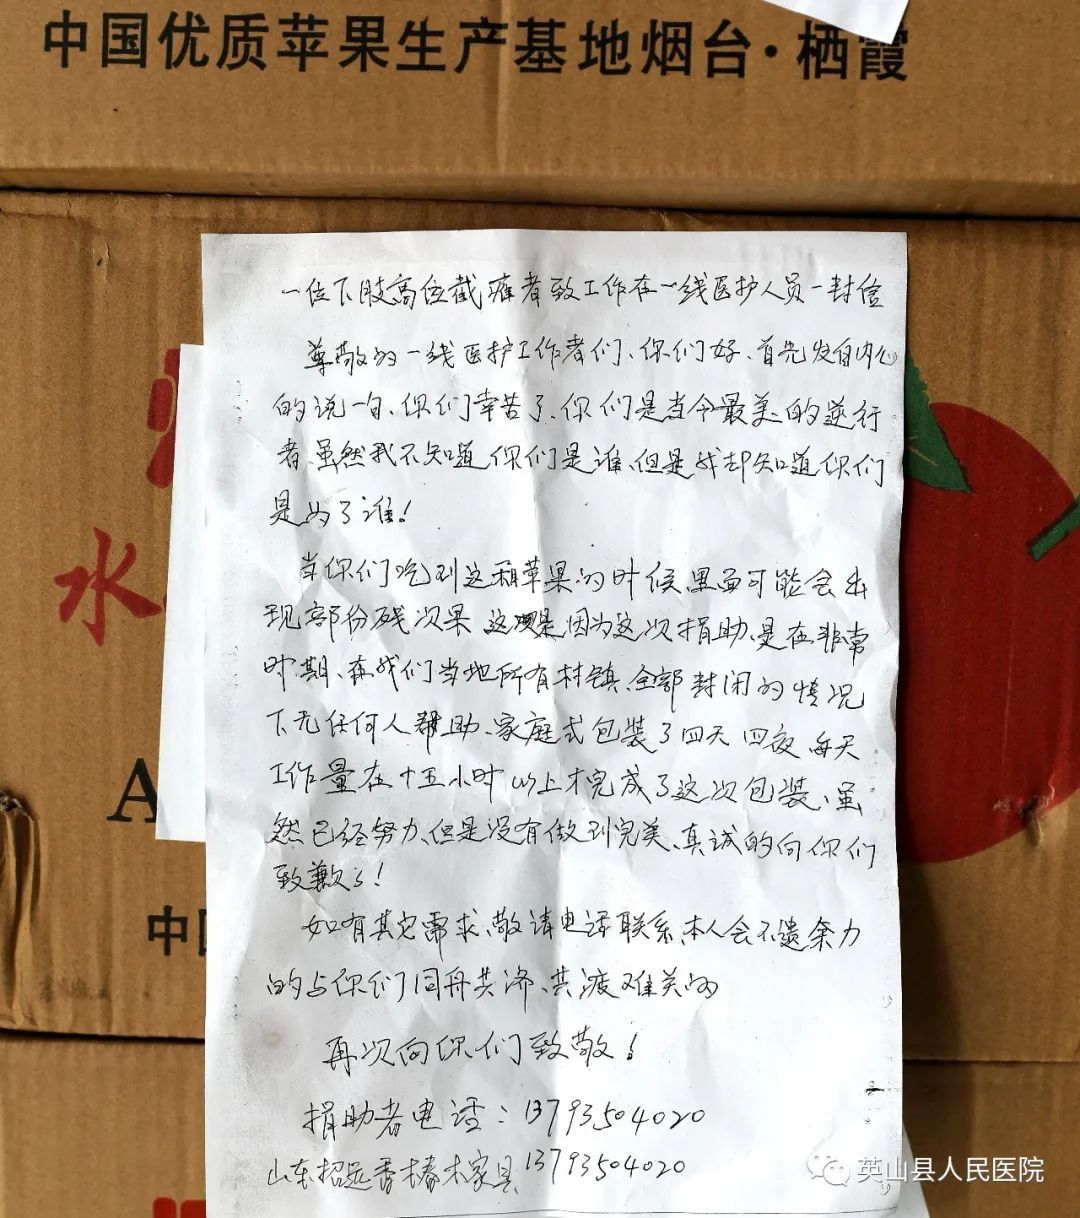 中国优质苹果生产基地烟台·栖霞
一位下肢高位截瘫者致工作在一线医护人员一封信
尊敬的一线医护工作者们、你们好、首先发自内心
的说一句、你们辛苦了、你们是当今最美的逆行
者、虽然我不知道你们是谁、但是我却知道你们
是为了谁!
当你们吃到这箱苹果的时候、里面可能会出
现部份残次果 这是因为这次捐助、是在非常
时期、在我们当地所有村镇、全部封闭的情况
下无任何人帮助、家庭式包装了四天四夜、每天
工作量在十五小时以上才完成了这次包装、虽
然已经努力、但是没有做到完美、真诚的向你们
致歉了!
如有其它需求、敬请电话联系、本人会不遗余力
的与你们同舟共济、共渡难关的
再次向你们致敬!
捐助者电话:13793504020
山东招远香椿木家具13793504020
水
A
中国
英山县人民医院